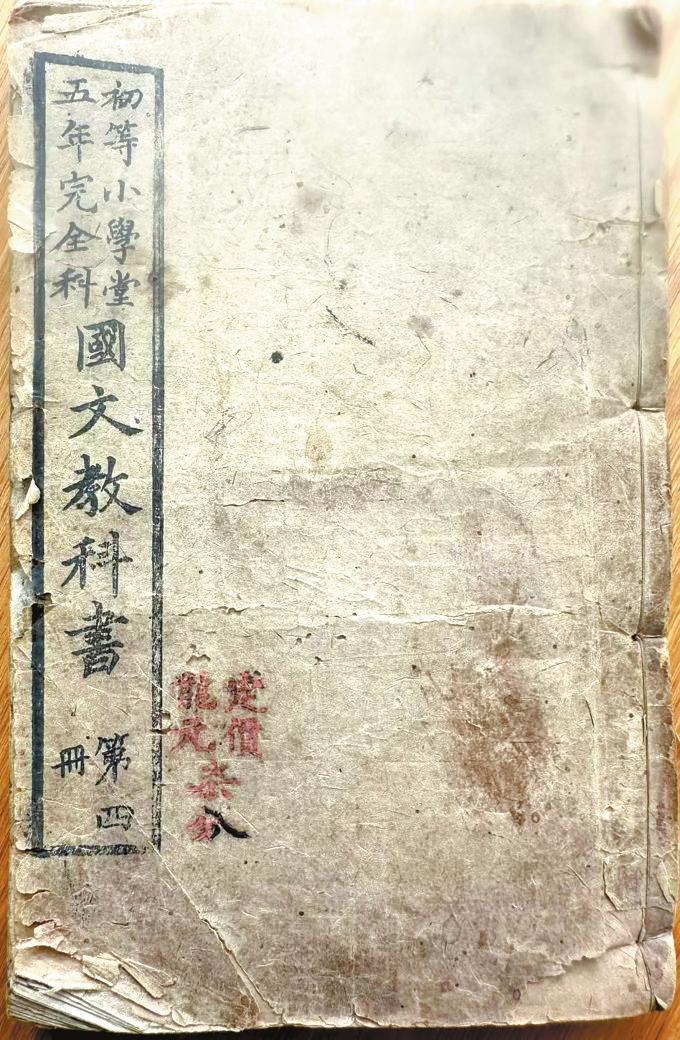 初等小學堂
五年完全科
國文教科書
第四
冊
定價
龍元
柒
分
八